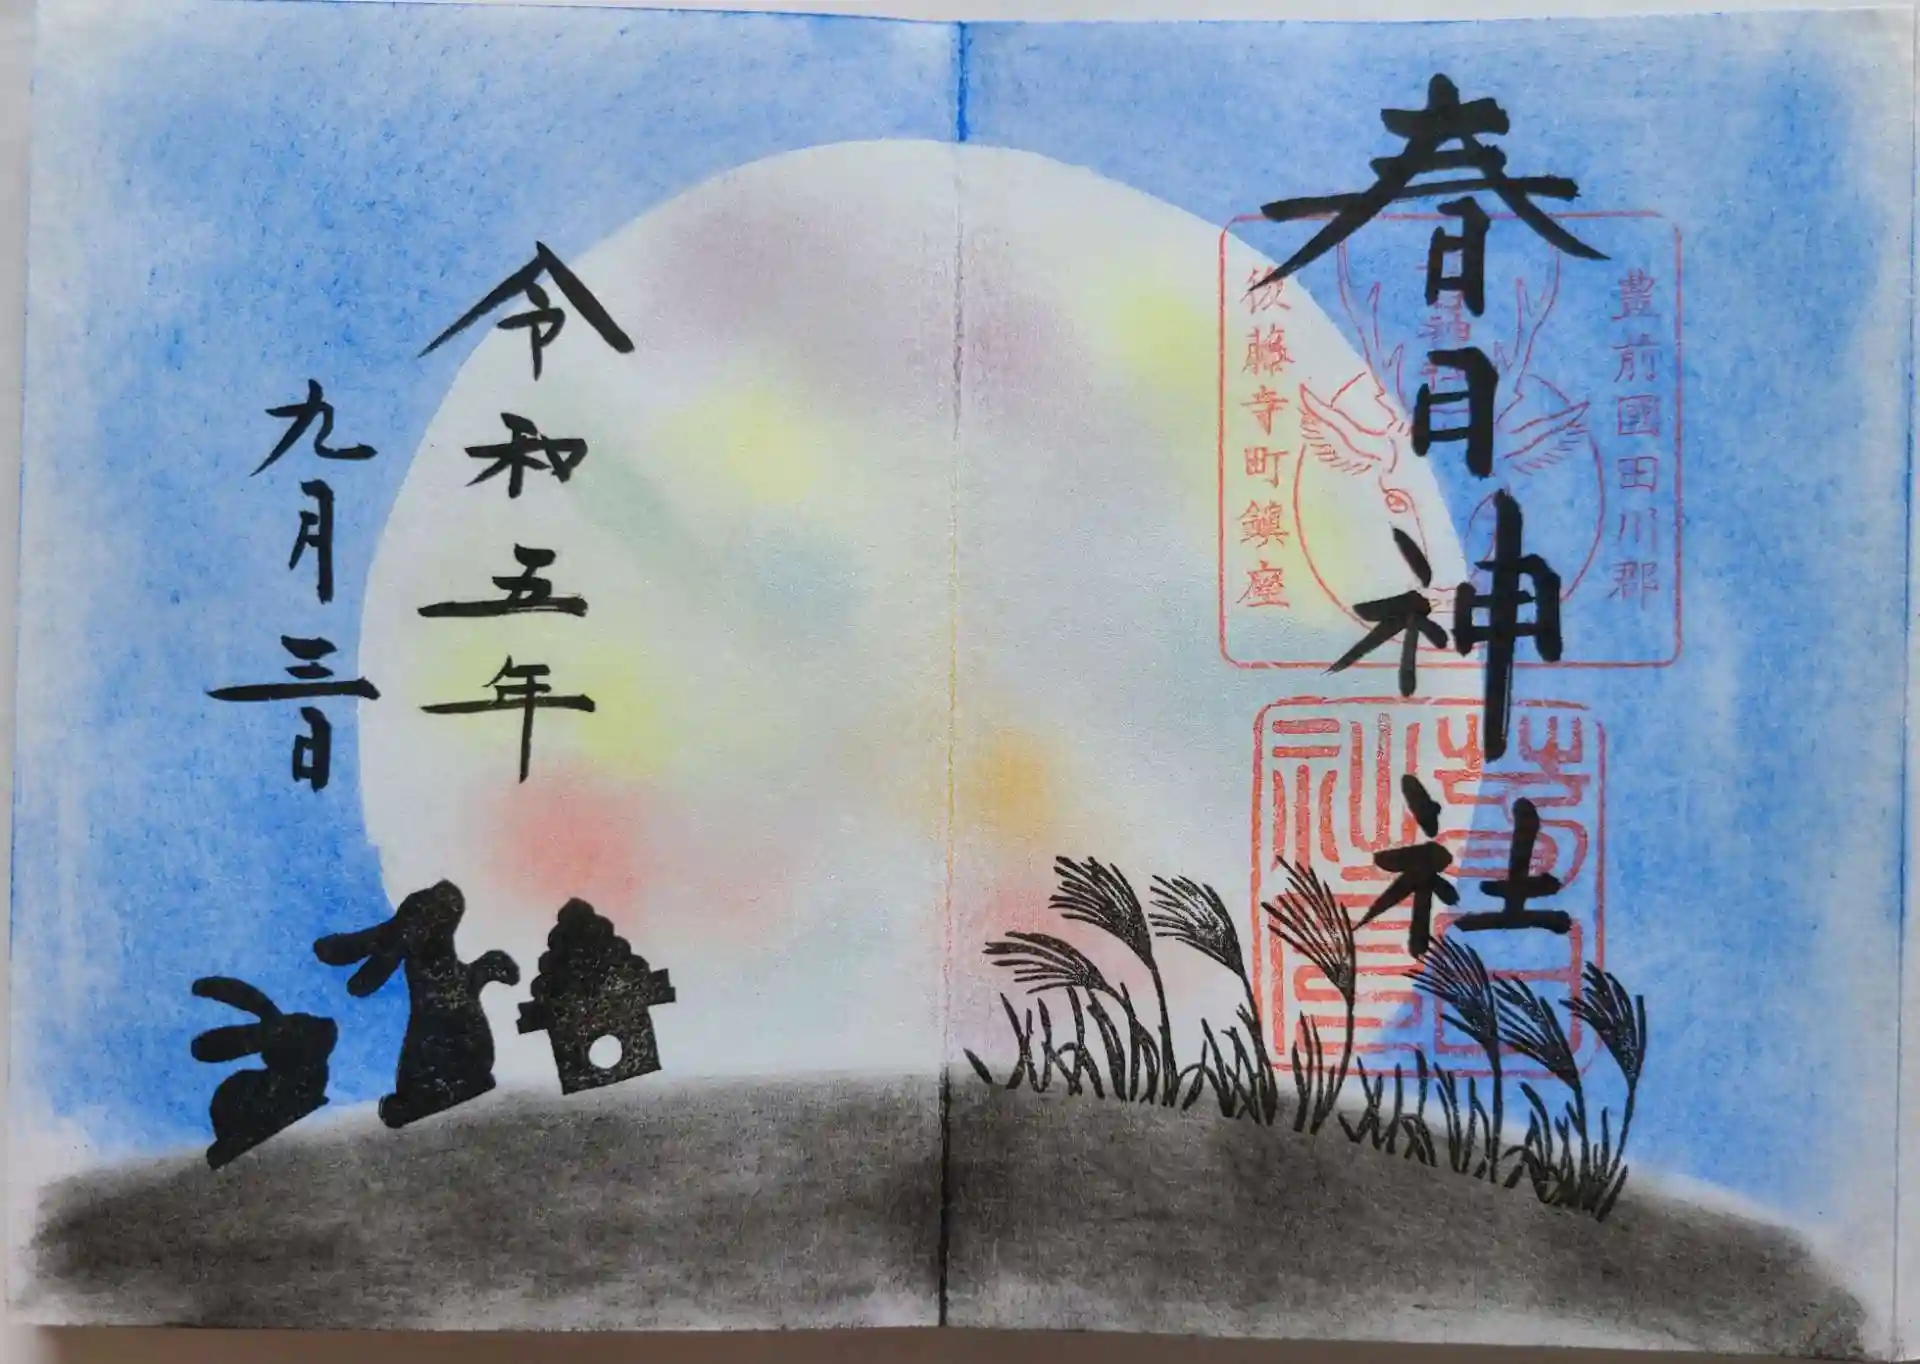 春日神社
豊前國田川郡
後藤寺町鎮座
春日
神社
令和五年
九月三日